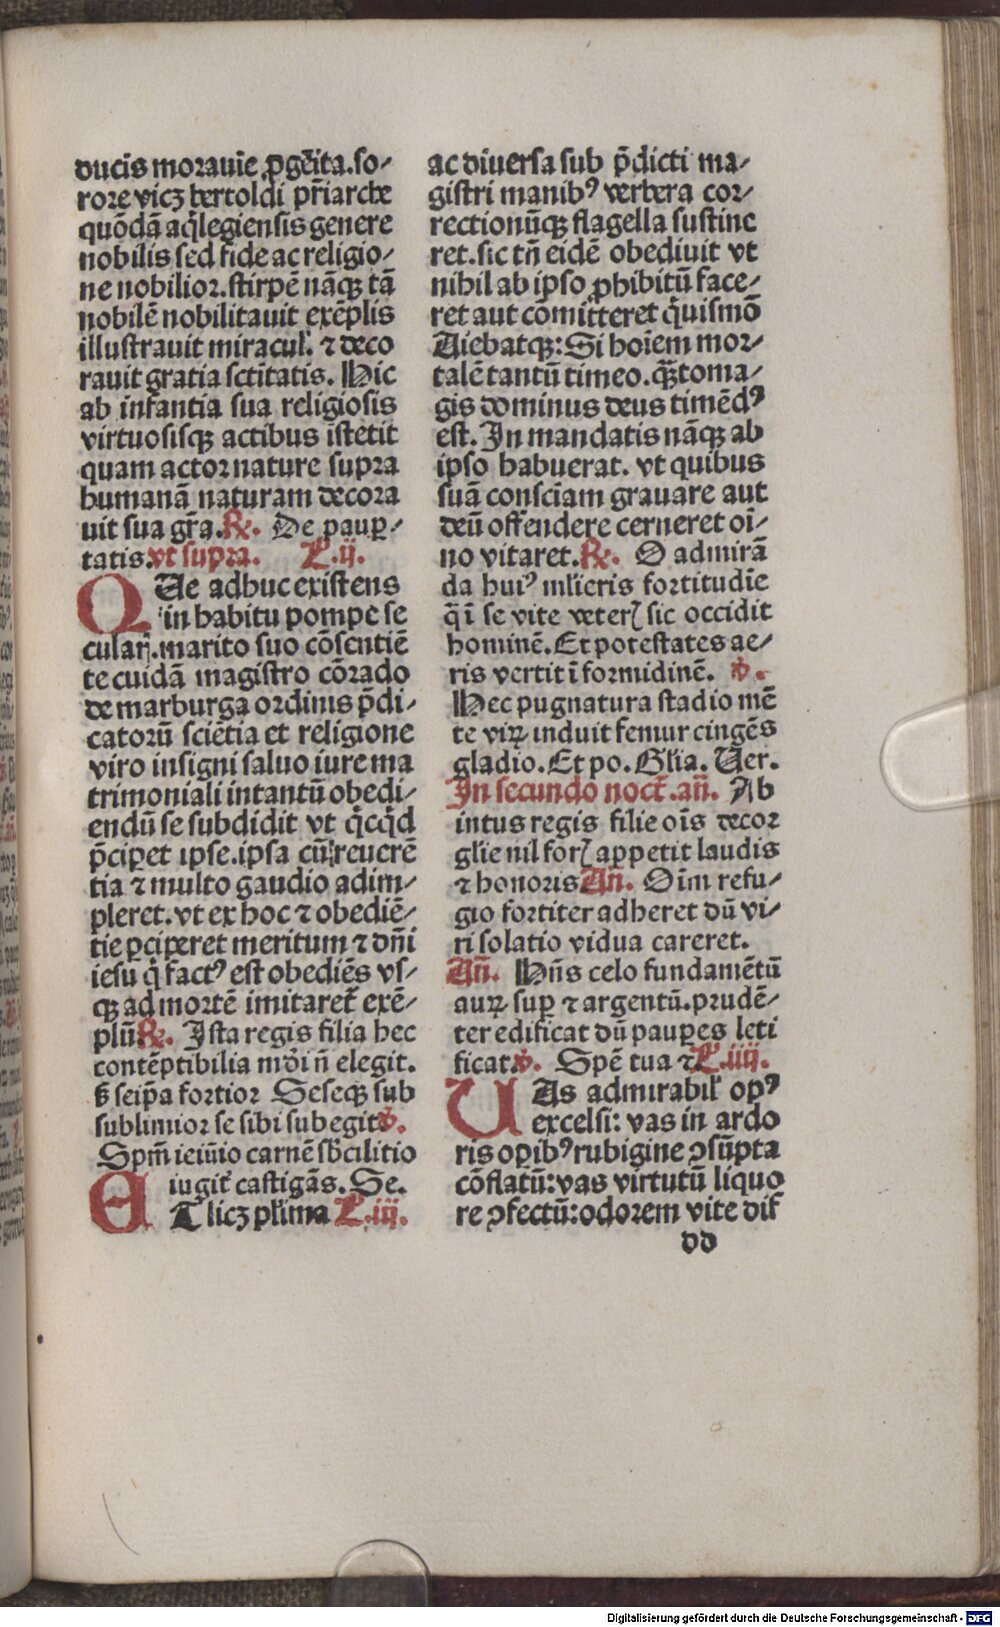 ducis morauie ꝓgeĩta.so⸗
rore vicꝫ bertoldi pr̃iarche
quõdã aq̃legiensis genere
nobilis sed fide ac religio⸗
ne nobilior.stirpẽ nãqꝫ tã
nobilẽ nobilitauit exẽplis
illustrauit miracul'. ⁊ deco
rauit gratia sctĩtatis. Hic
ab infantia sua religiosis
virtuosisqꝫ actibus ĩstetit
quam actor nature supra
humanã naturam decora
uit sua gr̃a.℞. De pauꝑ⸗
tatis.vt supra. L'.ij.
QUe adhuc existens
in habitu pompe se
cularꝭ.marito suo cõsentiẽ
te cuidã magistro cõrado
de marburga ordinis p̃di⸗
catorũ sciẽtia et religione
viro insigni saluo iure ma
trimoniali intantũ obedi⸗
endũ se subdidit vt q̃cq̃d
p̃ciꝑet ipse.ipsa cũ reuerẽ
tia ⁊ multo gaudio adim⸗
pleret.vt ex hoc ⁊ obediẽ⸗
tie ꝑciꝑet meritum ⁊ dñi
iesu q̃ factꝰ est obediẽs vs⸗
qꝫ ad mortẽ imitaret̃ exẽ⸗
plũ ℞. Ista regis filia hec
contẽptibilia mũdi ñ elegit.
ꝫ seip̃a fortior Seseqꝫ sub
sublimior se sibi subegit ℣.
Spm̃ ieiũio carnẽ sb̃cilitio
iugit' castigãs. Se.
ETlicꝫ pl'ima L'.iij.
ac diuersa sub p̃dicti ma⸗
gistri manibꝰ verbera cor⸗
rectionũqꝫ flagella sustine
ret.sic tñ eidẽ obediuit vt
nihil ab ipso ꝓhibitũ face⸗
ret aut cõmitteret q̃uismõ
Aiebatqꝫ: Si hoĩem mor⸗
talẽ tantũ timeo.qꝫtoma⸗
gis dominus deus timẽdꝰ
est. In mandatis nãqꝫ ab
ipso habuerat. vt quibus
suã consciam grauare aut
deũ offendere cerneret oĩ⸗
no vitaret.℞. O admirã
da huiꝰ ml'ieris fortitudĩe
q̃ ĩ se vite veterꝭ sic occidit
hominẽ. Et potestates ae⸗
ris vertit ĩ formidinẽ. ℣.
Hec pugnatura stadio mẽ
te virꝝ induit femur cingẽs
gladio. Et po. Gl'ia. Uer.
In secundo noct̃.añ. Ab
intus regis filie oĩs decor
gl'ie nil forꝭ appetit laudis
⁊ honoris Añ. Oĩm refu⸗
gio fortiter adheret dũ vi⸗
ri solatio vidua careret.
Añ. Hñs celo fundamẽtũ
aurꝝ suꝑ ⁊ argentũ.prudẽ⸗
ter edificat dũ pauꝑes leti
ficat ℣. Spẽ tua ⁊ L'.iiij.
UAs admirabil' opꝰ
excelsi: vas in ardo
ris oꝑibꝰ rubigine ꝯsũpta
cõflatũ: vas virtutũ liquo
re ꝑfectũ: odorem vite dif
dd
Digitalisierung gefördert durch die Deutsche Forschungsgemeinschaft - DFG